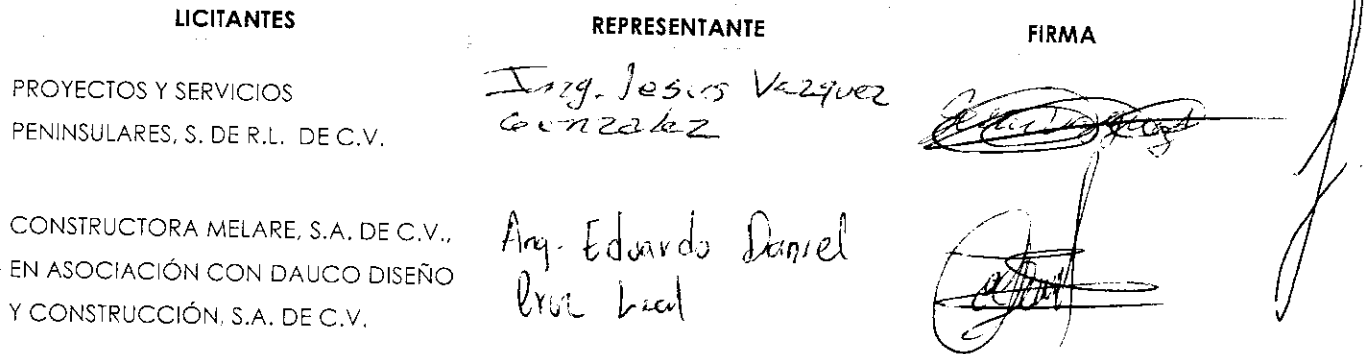 LICITANTES REPRESENTANTE FIRMA
PROYECTOS Y SERVICIOS
PENINSULARES, S. DE R.L. DE C.V.
Ing. Jesus Vazquez
Gonzalez
CONSTRUCTORA MELARE, S.A. DE C.V.,
EN ASOCIACIÓN CON DAUCO DISEÑO
Y CONSTRUCCIÓN, S.A. DE C.V.
Arq. Eduardo Daniel
Cruz Leal